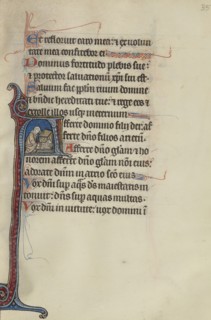 Et refloruit caro mea: et ex uolun
tate mea confitebor ei
Dominus fortitudo plebis sue:
et protector saluationum xpi sui est.
Saluum fac pplm tuum domine
et bndic hereditati tue: et rege eos et
extolle illos usqz in eternum
Afferte domino filii dei: af
ferte dno filios arietū.
Afferte dno glam et ho
norem afferte dno glam nōi eius:
adorate dnm in atrio sco eius
Uox dni sup aqs ds maiestatis in
tonuit: dns sup aquas multas.
Uox dni in uirtute: uox domini ī